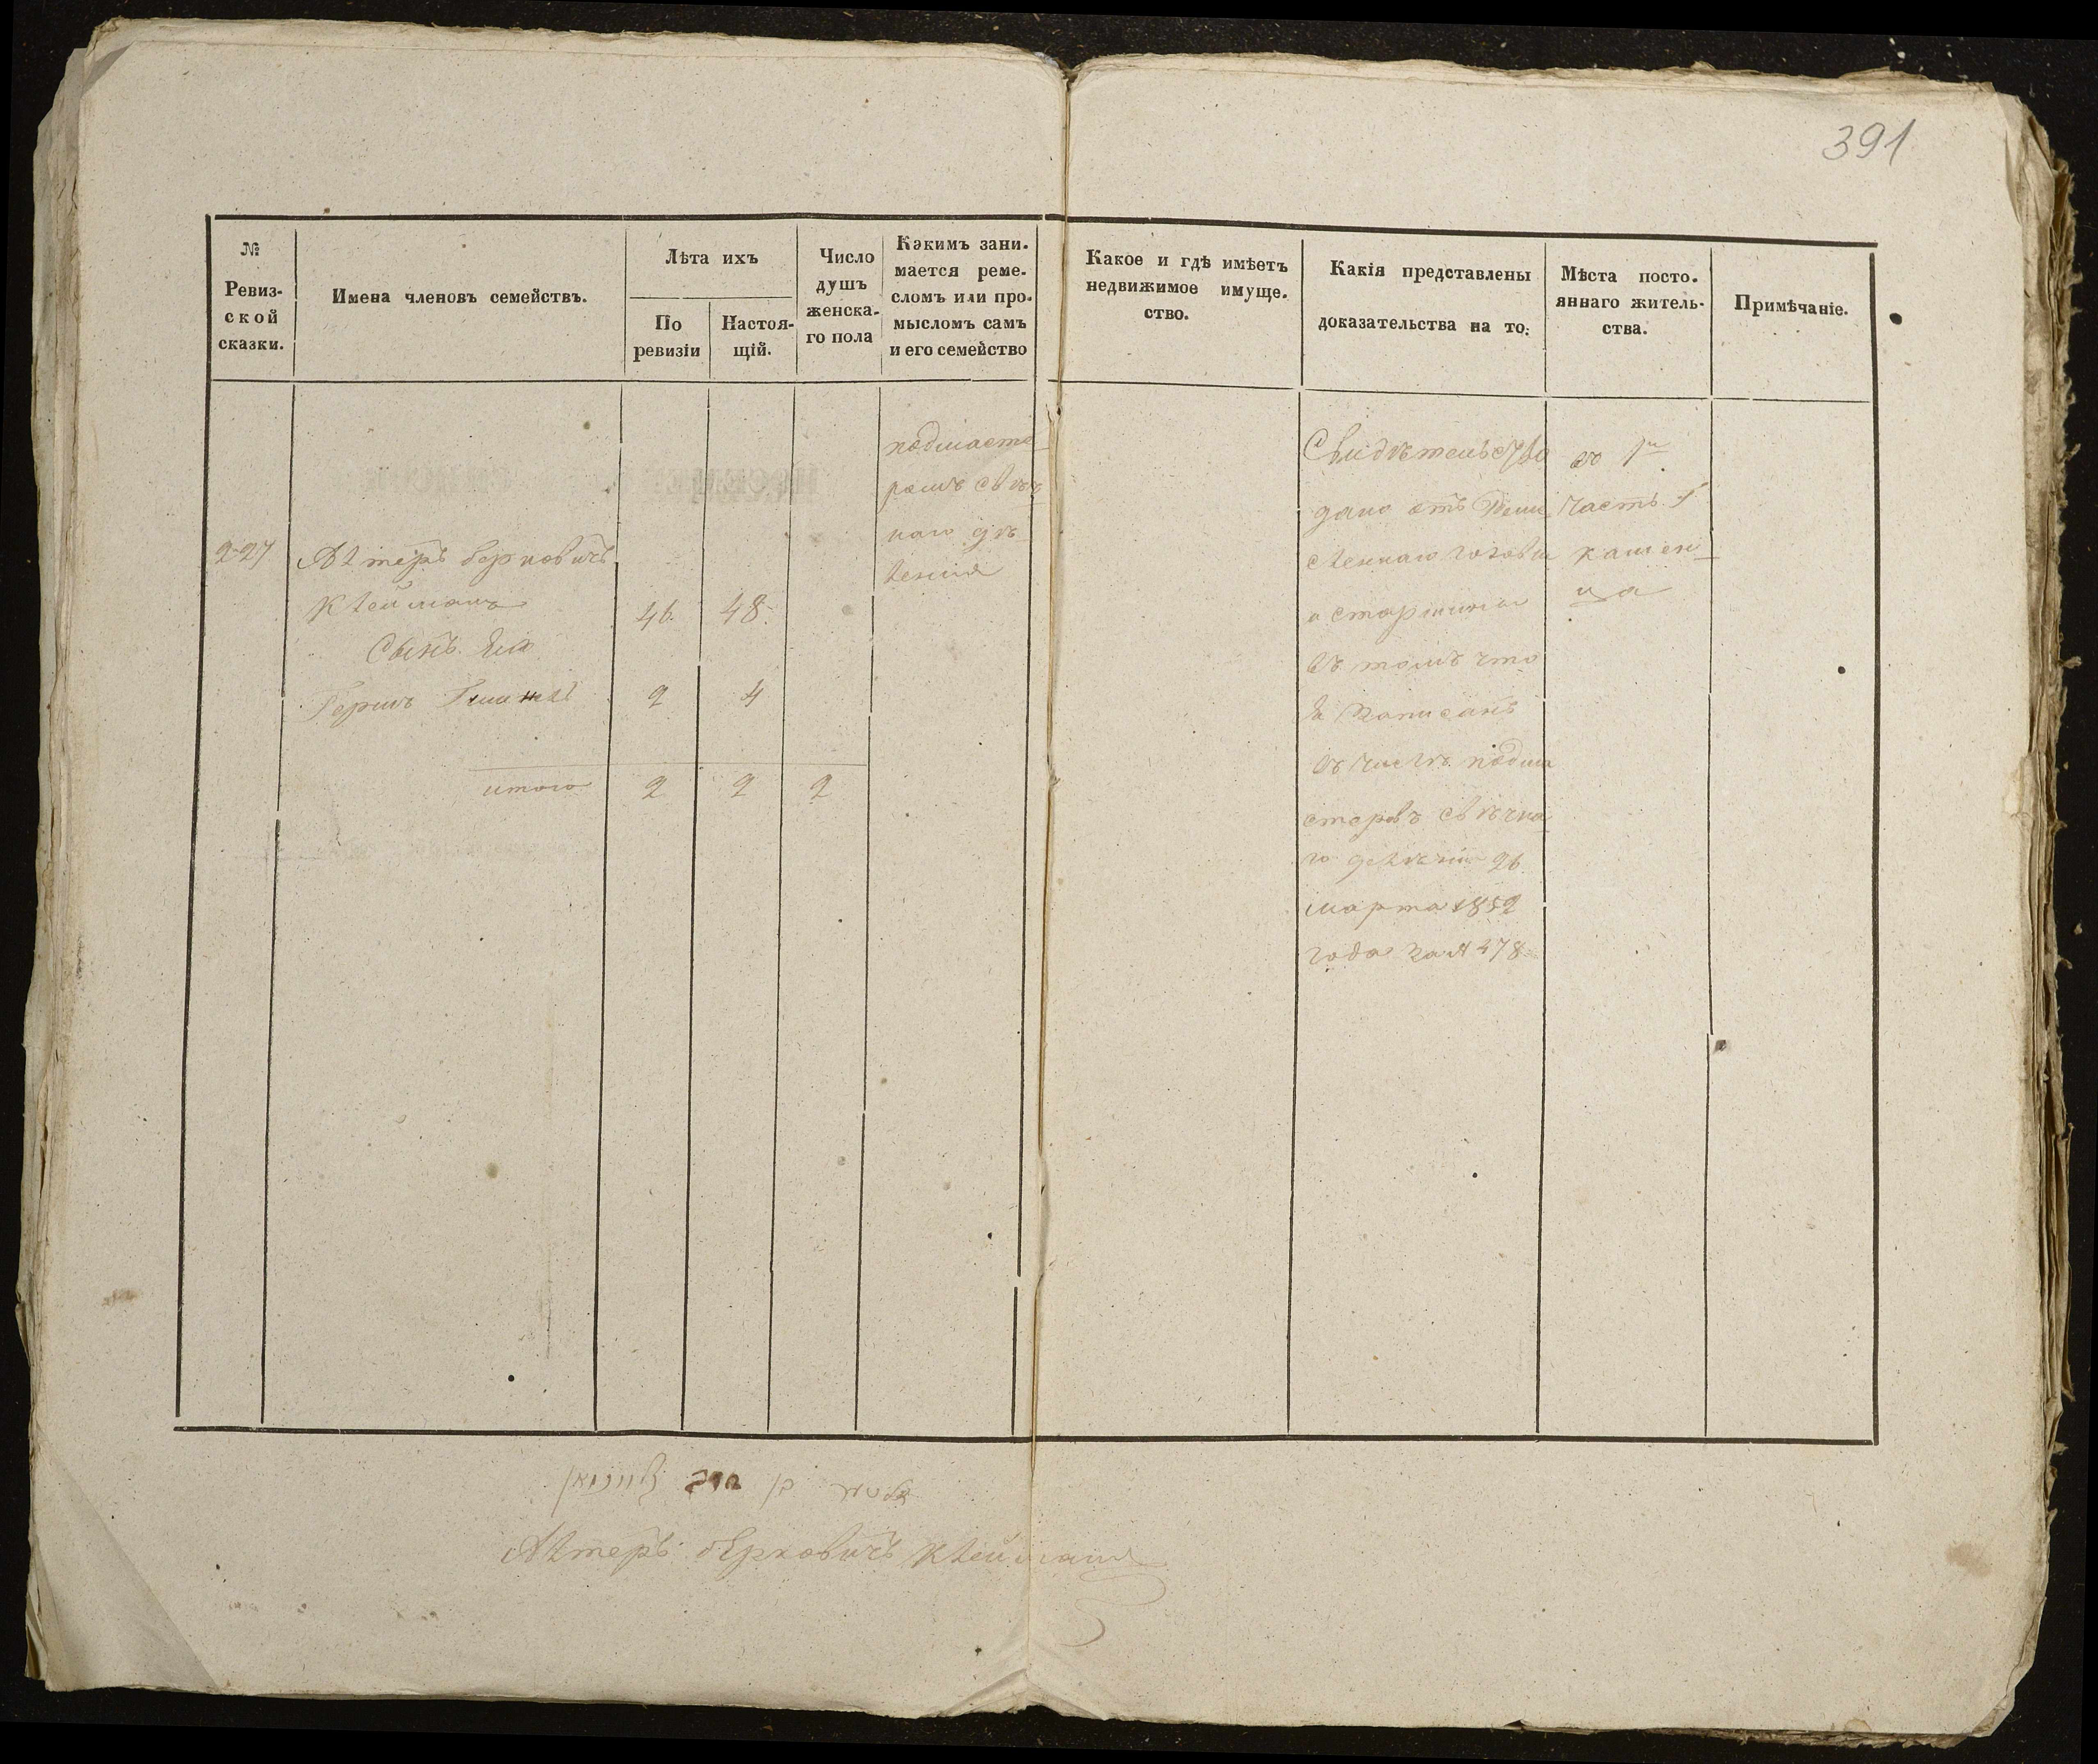 391
№
Ревиз-
ской
сказки.
Имена членовъ семействъ.
Лѣта ихъ
По
ревизіи
Настоя-
щій.
Число
душъ
женска-
го пола
Какимъ зани-
мается реме-
сломъ или про-
мысломъ самъ
и его семейство
Какое и гдѣ имѣетъ
недвижимое имуще-
ство.
Какія представлены
доказательства на то:
Мѣста посто-
яннаго житель-
ства.
Примѣчаніе.
227
Алтеръ Берковичъ
Клейманъ
46 48
Сынъ Его
Гершъ
2 4
итого 2 2 2
подмасте
ромъ свѣч
наго дѣ
ленія
Свидѣтельство
дано отъ Реме
сленнаго головы
и старшины
въ томъ что
Я Записанъ
въ числѣ подма
стеровъ свѣчна
го
26
марта 1852
года За № 478
во 1й
часть
камен
ца
Алтеръ Берковичъ Клейманъ